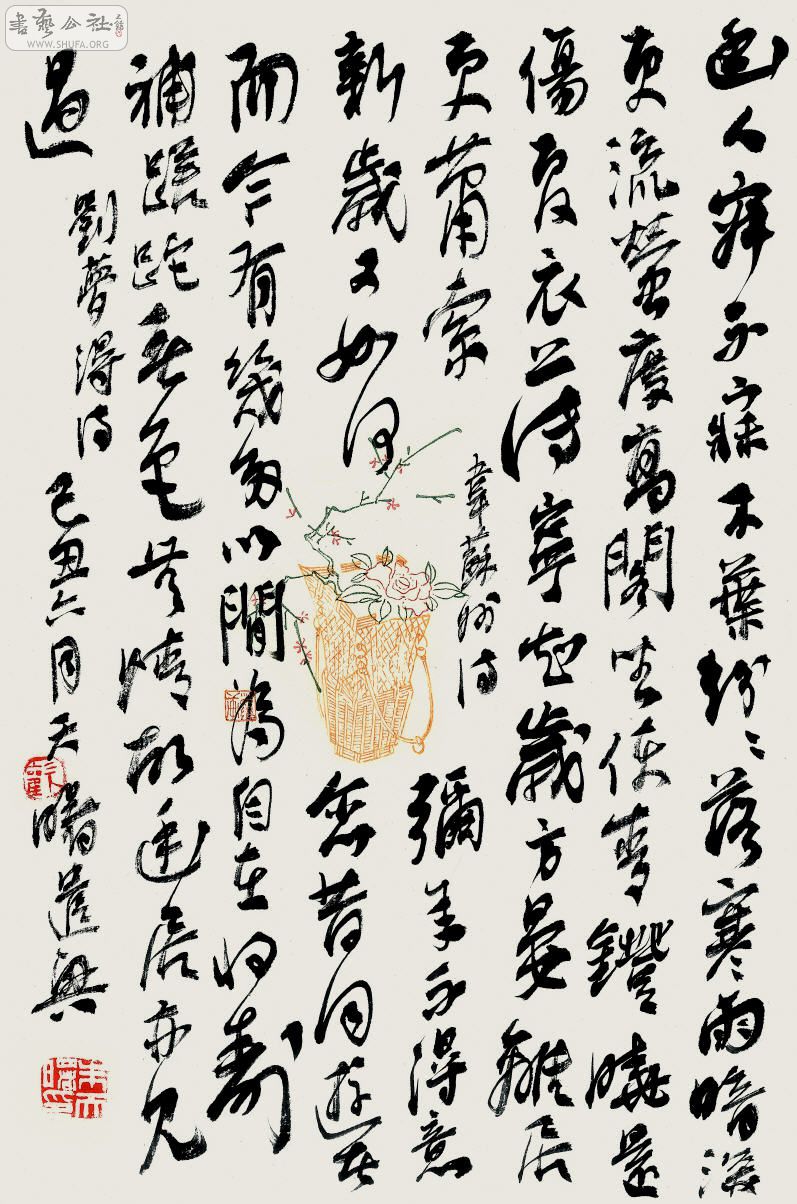 書藝公社
WWW.SHUFA.ORG
幽人寂不寐木葉紛〻落寒雨暗深
更流螢度高閣坐使青鐙曉還
傷夏衣薄寧知歲方晏離居
更蕭索
韋蘇州詩
彌年不得意
新歲又如何
念昔同遊者
而今有幾多以閒為自在將壽
補蹉跎春色無情故幽居亦見
過
劉夢得詩
己丑六月天曙遣興
朱天曙印